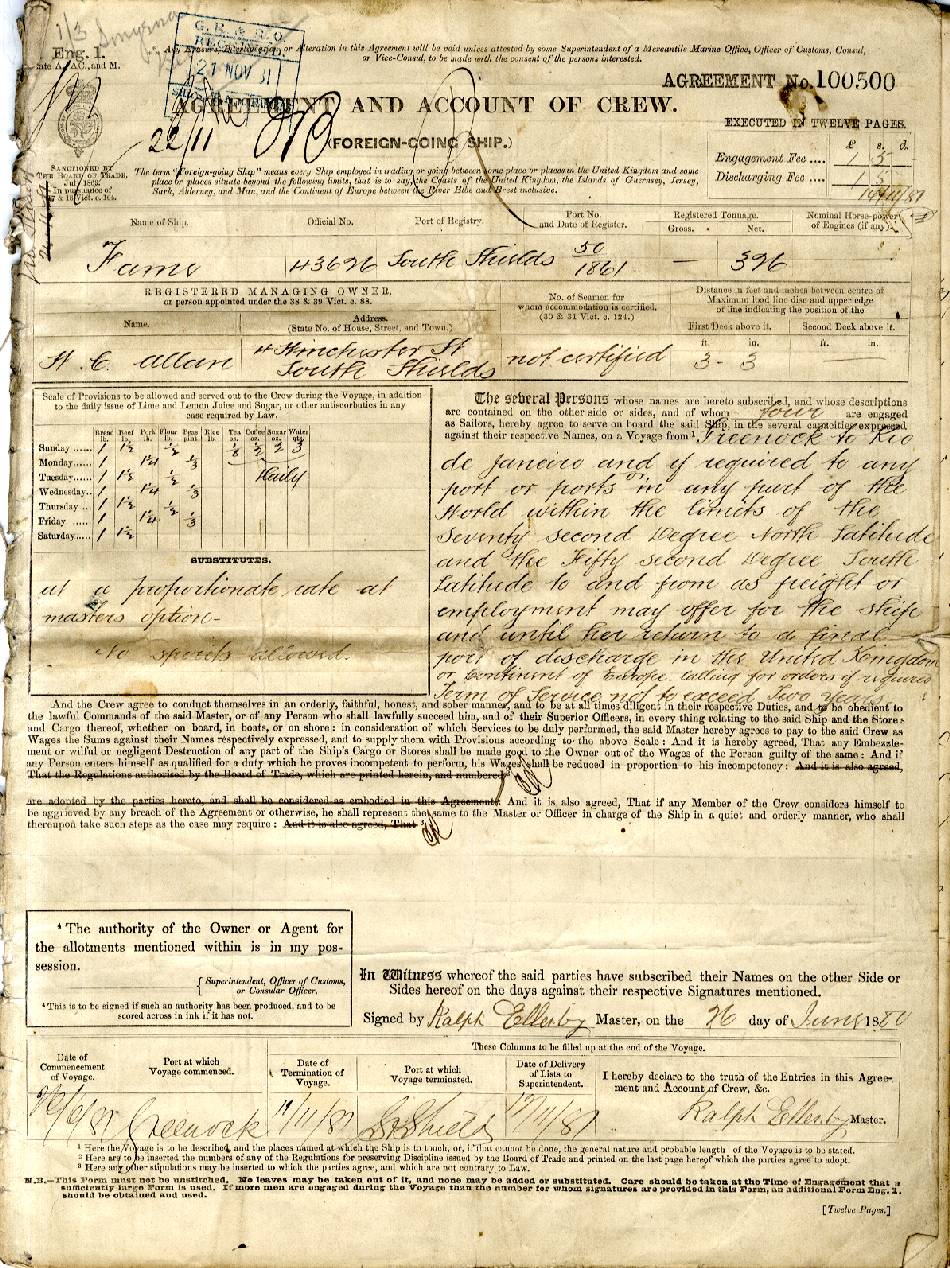 1/3 Smyrna
Eng. 1.
Any Erasure, Interlineation, or Alteration in this Agreement will be void unless attested by some Superintendent of a Mercantile Marine Office, Officer of Customs, Consul,
or Vice-Consul, to be made with the consent of the persons interested.
21 NOV 81
AGREEMENT No. 100500
AGREEMENT AND ACCOUNT OF CREW.
22/11
(FOREIGN-GOING SHIP.)
EXECUTED IN TWELVE PAGES.
£ s. d.
Engagement Fee .... 1 5
Discharging Fee .... 1 5
19/11/81
SANCTIONED BY
THE BOARD OF TRADE,
The term "Foreign-going Ship" means every Ship employed in trading or going between some place or places in the United Kingdom and some
place or places situate beyond the following limits, that is to say, the Coasts of the United Kingdom, the Islands of Guernsey, Jersey,
Sark, Alderney, and Man, and the Continent of Europe between the River Elbe and Brest inclusive.
Name of Ship. Official No. Port of Registry. Port No. and Date of Register. Registered Tonnage. Gross. Net. Nominal Horse-power of Engines (if any).
Fame 43696 South Shields 50/1861 — 396
REGISTERED MANAGING OWNER,
or person appointed under the 38 & 39 Vict. c. 88.
No. of Seamen for
whom accommodation is certified.
(30 & 31 Vict. c. 124.)
Distance in feet and inches between centre of
Maximum load line disc and upper edge
of line indicating the position of the
Name. Address.
(State No. of House, Street, and Town.)
First Deck above it. Second Deck above it.
ft. in. ft. in.
H. C. Allan Winchester St
South Shields not certified 3 - 3 —
Scale of Provisions to be allowed and served out to the Crew during the Voyage, in addition
to the daily issue of Lime and Lemon Juice and Sugar, or other antiscorbutics in any
case required by Law.
Bread lb. Beef lb. Pork lb. Flour lb. Peas pint. Rice lb. Tea oz. Coffee oz. Sugar oz. Water qts.
Sunday ...... 1 1½ ½ ⅛ ½ 2 3
Monday ...... 1 1¼ ⅓
Tuesday ...... 1 1½ ½ Daily
Wednesday .. 1 1¼ ⅓
Thursday .. 1 1½ ½
Friday ...... 1 1¼ ⅓
Saturday ...... 1 1½
SUBSTITUTES.
at a proportionate rate at
masters option-
No spirits allowed.
The several Persons whose names are hereto subscribed, and whose descriptions
are contained on the other side or sides, and of whom four are engaged
as Sailors, hereby agree to serve on board the said Ship, in the several capacities expressed
against their respective Names, on a Voyage from¹ Greenock to Rio
de Janeiro and if required to any
port or ports in any part of the
World within the limits of the
Seventy second Degree North Latitude
and the Fifty second Degree South
Latitude to and from as freight or
employment may offer for the ship
and until her return to a final
port of discharge in the United Kingdom
or Continent of Europe calling for orders if required
Term of Service not to exceed Two Years
And the Crew agree to conduct themselves in an orderly, faithful, honest, and sober manner, and to be at all times diligent in their respective Duties, and to be obedient to
the lawful Commands of the said Master, or of any Person who shall lawfully succeed him, and of their Superior Officers, in every thing relating to the said Ship and the Stores
and Cargo thereof, whether on board, in boats, or on shore: in consideration of which Services to be duly performed, the said Master hereby agrees to pay to the said Crew as
Wages the Sums against their Names respectively expressed, and to supply them with Provisions according to the above Scale: And it is hereby agreed, That any Embezzle-
ment or wilful or negligent Destruction of any part of the Ship's Cargo or Stores shall be made good to the Owner out of the Wages of the Person guilty of the same: And if
any Person enters himself as qualified for a duty which he proves incompetent to perform, his Wages shall be reduced in proportion to his incompetency: And it is also agreed,
That the Regulations authorised by the Board of Trade, which are printed herein, and numbered
are adopted by the parties hereto, and shall be considered as embodied in this Agreement: And it is also agreed, That if any Member of the Crew considers himself to
be aggrieved by any breach of the Agreement or otherwise, he shall represent the same to the Master or Officer in charge of the Ship in a quiet and orderly manner, who shall
thereupon take such steps as the case may require: And it is also agreed, That
* The authority of the Owner or Agent for
the allotments mentioned within is in my pos-
session.
Superintendent, Officer of Customs,
or Consular Officer.
* This is to be signed if such an authority has been produced, and to be
scored across in ink if it has not.
In Witness whereof the said parties have subscribed their Names on the other Side or
Sides hereof on the days against their respective Signatures mentioned.
Signed by Ralph Ellerby Master, on the 26 day of June 188
These Columns to be filled up at the end of the Voyage.
Date of
Commencement
of Voyage.
Port at which
Voyage commenced.
Date of
Termination of
Voyage.
Port at which
Voyage terminated.
Date of Delivery
of Lists to
Superintendent.
I hereby declare to the truth of the Entries in this Agree-
ment and Account of Crew, &c.
Greenock 19/11/81 So Shields 19/11/81 Ralph Ellerby Master.
¹ Here the Voyage is to be described, and the places named at which the Ship is to touch, or, if that cannot be done, the general nature and probable length of the Voyage is to be stated.
² Here are to be inserted the numbers of any of the Regulations for preserving Discipline issued by the Board of Trade and printed on the last page hereof which the parties agree to adopt.
³ Here any other stipulations may be inserted to which the parties agree, and which are not contrary to Law.
N.B.—This Form must not be unstitched. No leaves may be taken out of it, and none may be added or substituted. Care should be taken at the Time of Engagement that a
sufficiently large Form is used. If more men are engaged during the Voyage than the number for whom signatures are provided in this Form, an additional Form Eng. 1.
should be obtained and used.
[Twelve Pages.]